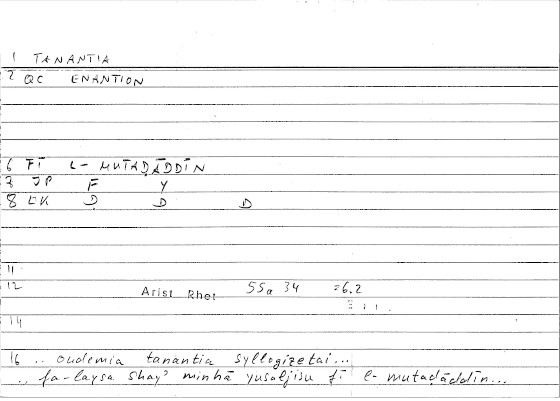 1 TANANTIA
2 QC ENANTION
6 FĪ L- MUTAḌĀDDĪN
7 JP F Y
8 EK Ḍ D D
11
12 Arist Rhet 55a 34 =6.2
14
16 .. oudemia tanantia syllogizetai...
.. fa-laysa shay' minhā yusaljisu fī l- mutaḍāddīn...